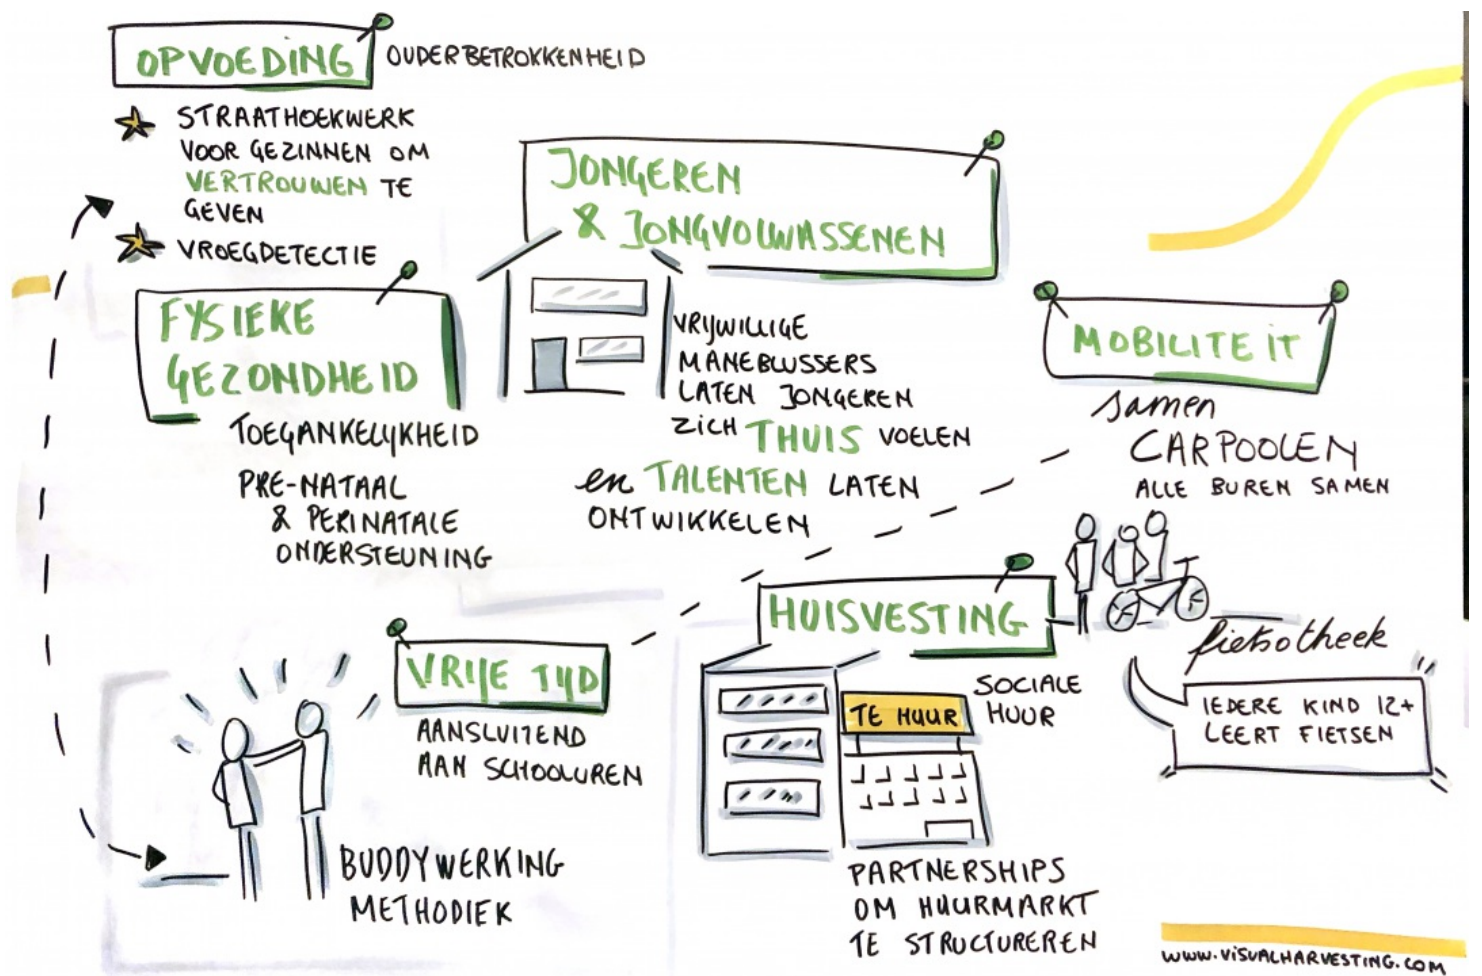 OPVOEDING
OUDERBETROKKENHEID
STRAATHOEKWERK
VOOR GEZINNEN OM
VERTROUWEN TE
GEVEN
VROEGDETECTIE
FYSIEKE
GEZONDHEID
TOEGANKELIJKHEID
PRE-NATAAL
& PERINATALE
ONDERSTEUNING
JONGEREN
& JONGVOLWASSENEN
VRIJWILLIGE
MANEBLUSSERS
LATEN JONGEREN
ZICH THUIS VOELEN
en TALENTEN LATEN
ONTWIKKELEN
MOBILITEIT
samen
CARPOOLEN
ALLE BUREN SAMEN
fietsotheek
IEDERE KIND 12+
LEERT FIETSEN
VRIJE TIJD
AANSLUITEND
AAN SCHOOLUREN
BUDDYWERKING
METHODIEK
HUISVESTING
SOCIALE
HUUR
TE HUUR
PARTNERSHIPS
OM HUURMARKT
TE STRUCTUREREN
WWW.VISUALHARVESTING.COM